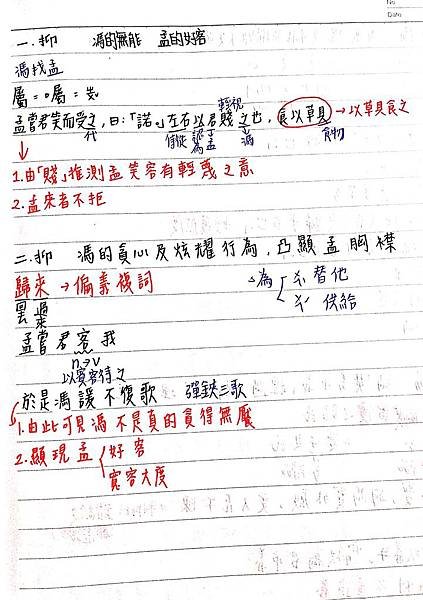 No
Date
一.抑 馮的無能 孟的好客
馮找孟
屬=囑=ㄓㄨˇ
輕視
孟嘗君笑而受之,曰:「諾。」左右以君賤之也,食以草具→以草具食之
代 侍從 認為孟 馮 食物
1.由「賤」推測孟笑容有輕蔑之意
2.孟來者不拒
二.抑 馮的貪心及炫耀行為,凸顯孟胸襟
歸來→偏義複詞
為 ㄨㄟˋ替他
ㄨㄟˋ供給
過
孟嘗君客我
n→v
以賓客待之
於是馮諼不復歌 彈鋏三歌
1.由此可見馮不是真的貪得無厭
2.顯現孟 好客
寬容大度